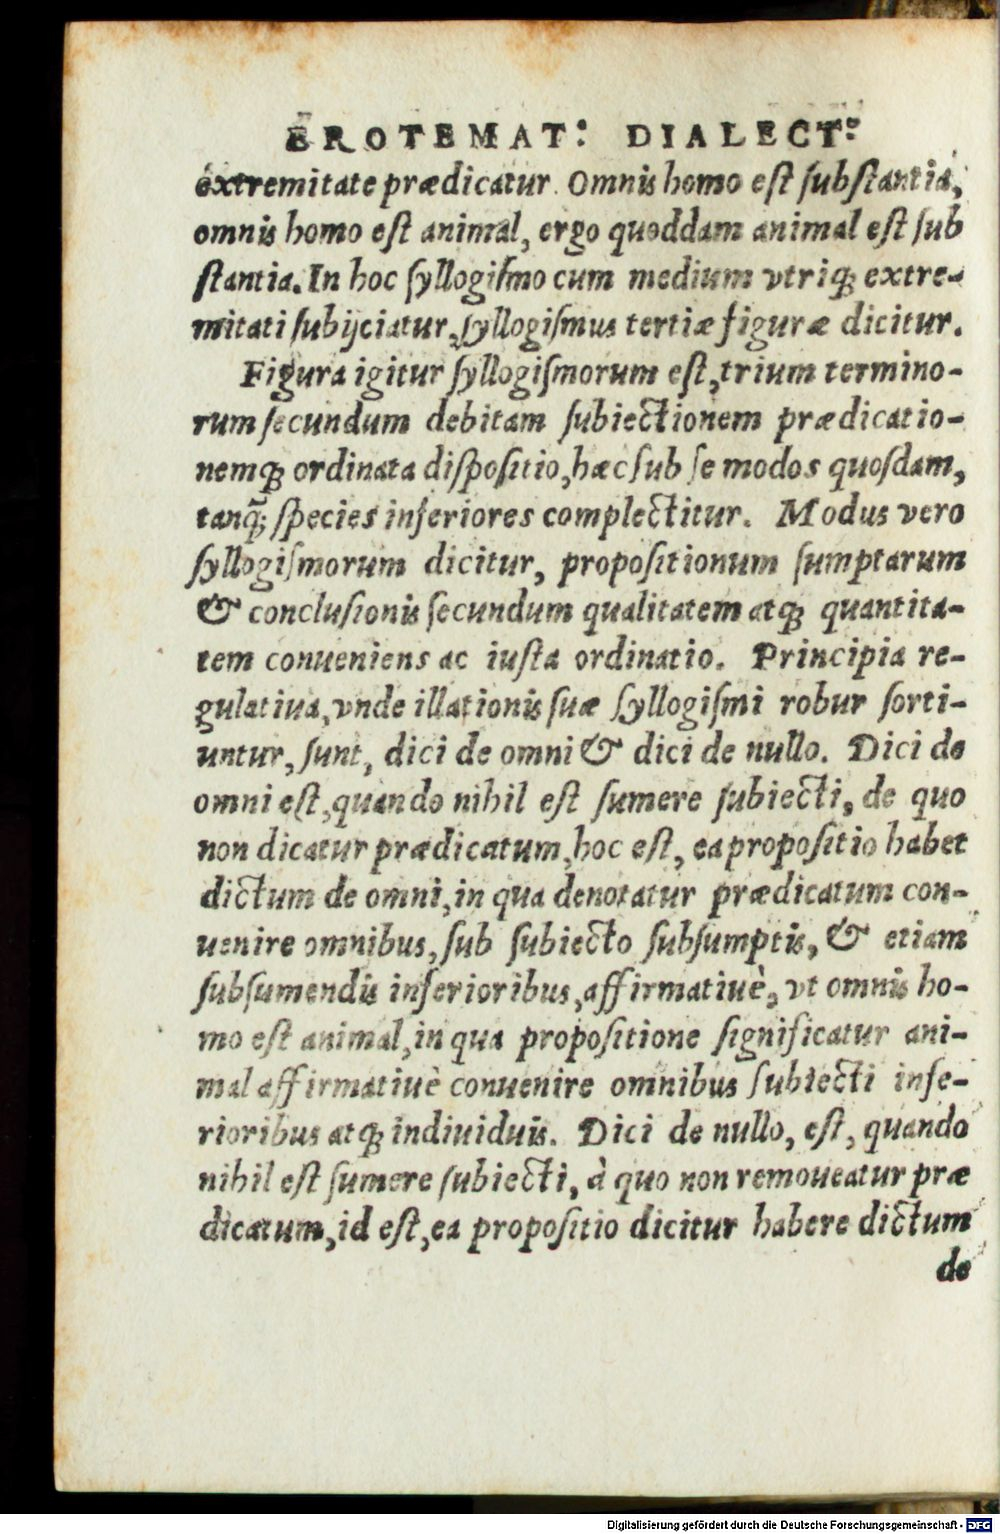 EROTEMAT. DIALECT.
extremitate prædicatur. Omnis homo est substantia,
omnis homo est animal, ergo quoddam animal est sub
stantia. In hoc syllogismo cum medium vtriq; extre-
mitati subijciatur, syllogismus tertiæ figuræ dicitur.
Figura igitur syllogismorum est, trium termino-
rum secundum debitam subiectionem prædicatio-
nemq; ordinata dispositio, hæc sub se modos quosdam,
tanq̃; species inferiores complectitur. Modus vero
syllogismorum dicitur, propositionum sumptarum
& conclusionis secundum qualitatem atq; quantita-
tem conueniens ac iusta ordinatio. Principia re-
gulatiua, vnde illationis suæ syllogismi robur sorti-
untur, sunt, dici de omni & dici de nullo. Dici de
omni est, quando nihil est sumere subiecti, de quo
non dicatur prædicatum, hoc est, ea propositio habet
dictum de omni, in qua denotatur prædicatum con-
uenire omnibus, sub subiecto subsumptis, & etiam
subsumendis inferioribus, affirmatiuè, vt omnis ho-
mo est animal, in qua propositione significatur ani-
mal affirmatiuè conuenire omnibus subiecti infe-
rioribus atq; indiuiduis. Dici de nullo, est, quando
nihil est sumere subiecti, à quo non remoueatur præ
dicatum, id est, ea propositio dicitur habere dictum
de
Digitalisierung gefördert durch die Deutsche Forschungsgemeinschaft - DFG